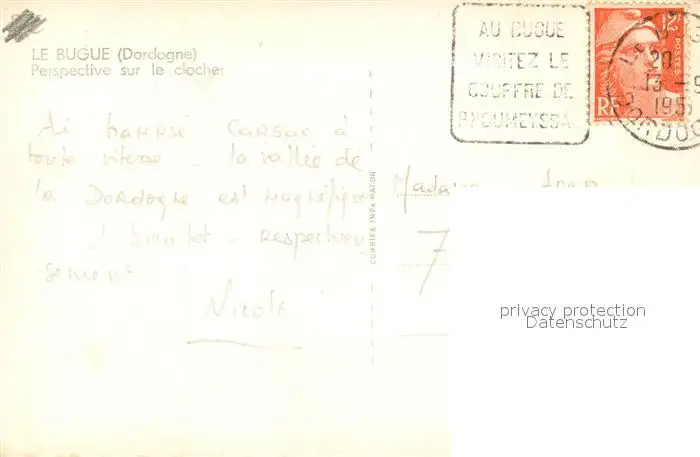 LE BUGUE (Dordogne)
Perspective sur le clocher
AU BUGUE
VISITEZ LE
GOUFFRE DE
PROUMEYSSAC
12F
POSTES
RF
13 - 9
195
DORDOG
Ai traversé CARSAC à
toute vitesse - la vallée de
la DORDOGNE est magnifique
A bientôt - Respectueu
sement
Nicole
COMBIER IMP. MACON
Madame
7
privacy protection
Datenschutz